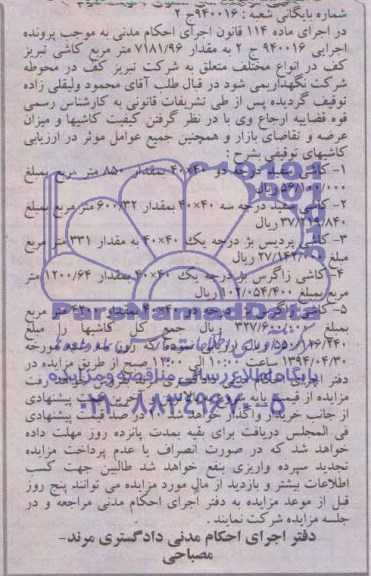 شماره بایگانی شعبه : ۹۴۰۰۱۶ج ۲
در اجرای ماده ۱۱۴ قانون اجرای احکام مدنی به موجب پرونده
اجرایی ۹۴۰۰۱۶ ج ۲ به مقدار ۷۱۸۱/۹۶ متر مربع کاشی تبریز
کف در انواع مختلف متعلق به شرکت تبریز کف در محوطه
شرکت نگهداریمی شود در قبال طلب آقای محمود ولیقلی زاده
توقیف گردیده پس از طی تشریفات قانونی به کارشناس رسمی
قوه قضاییه ارجاع وی با در نظر گرفتن کیفیت کاشیها و میزان
عرضه و تقاضای بازار و همچنین جمیع عوامل موثر در ارزیابی
کاشیهای توقیفی بشرح :
۱- کاشی سفید درجه دو ۴۰×۴۰ بمقدار ۸۵۰ متر مربع بمبلغ
ریال
۲- کاشی سفید درجه سه ۴۰×۴۰ بمقدار ۶۰۰/۳۲ متر مربع بمبلغ
۳۷/۲۱۹/۸۴۰ ریال
۳- کاشی پردیس بژ درجه یک ۴۰×۴۰ به مقدار ۳۳۱ متر مربع
مبلغ ریال
۴- کاشی زاگرس بژ درجه یک ۴۰×۴۰ بمقدار ۱۲۰۰/۶۴ متر
مربع بمبلغ ۱۰۲/۰۵۴/۴۰۰ ریال
۵- کاشی مربع
بمبلغ ریال جمع کل کاشیها را مبلغ
ریال ارزیابی نموده که روز مورخه
۱۳۹۴/۰۴/۳۰ ساعت ۱۰:۰۰ الی ۱۲:۰۰ صبح از طریق مزایده در
دفتر اجرای احکام مدنی دادگستری
مزایده از قیمت پایه قیمت پیشنهادی
از جانب خریدار واگذار خواهد شد ۱۰ در صد قیمت پیشنهادی
فی المجلس دریافت برای بقیه بمدت پانزده روز مهلت داده
خواهد شد که در صورت انصراف یا عدم پرداخت مزایده
تجدید سپرده واریزی بنفع خواهد شد طالبین جهت کسب
اطلاعات بیشتر و بازدید از مال مورد مزایده می توانند پنج روز
قبل از موعد مزایده به دفتر اجرای احکام مدنی مراجعه و در
جلسه مزایده شرکت نمایند .
دفتر اجرای احکام مدنی دادگستری مرند-
مصباحی
ParsNamadData
پایگاه اطلاع رسانی مناقصه و مزایده
۰۲۱-۸۸۳۴۹۶۷۰-۵